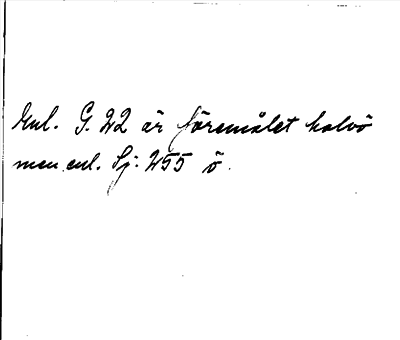 Enl. G. 22 är föremålet halvö
men enl. Sj: 255 ö.